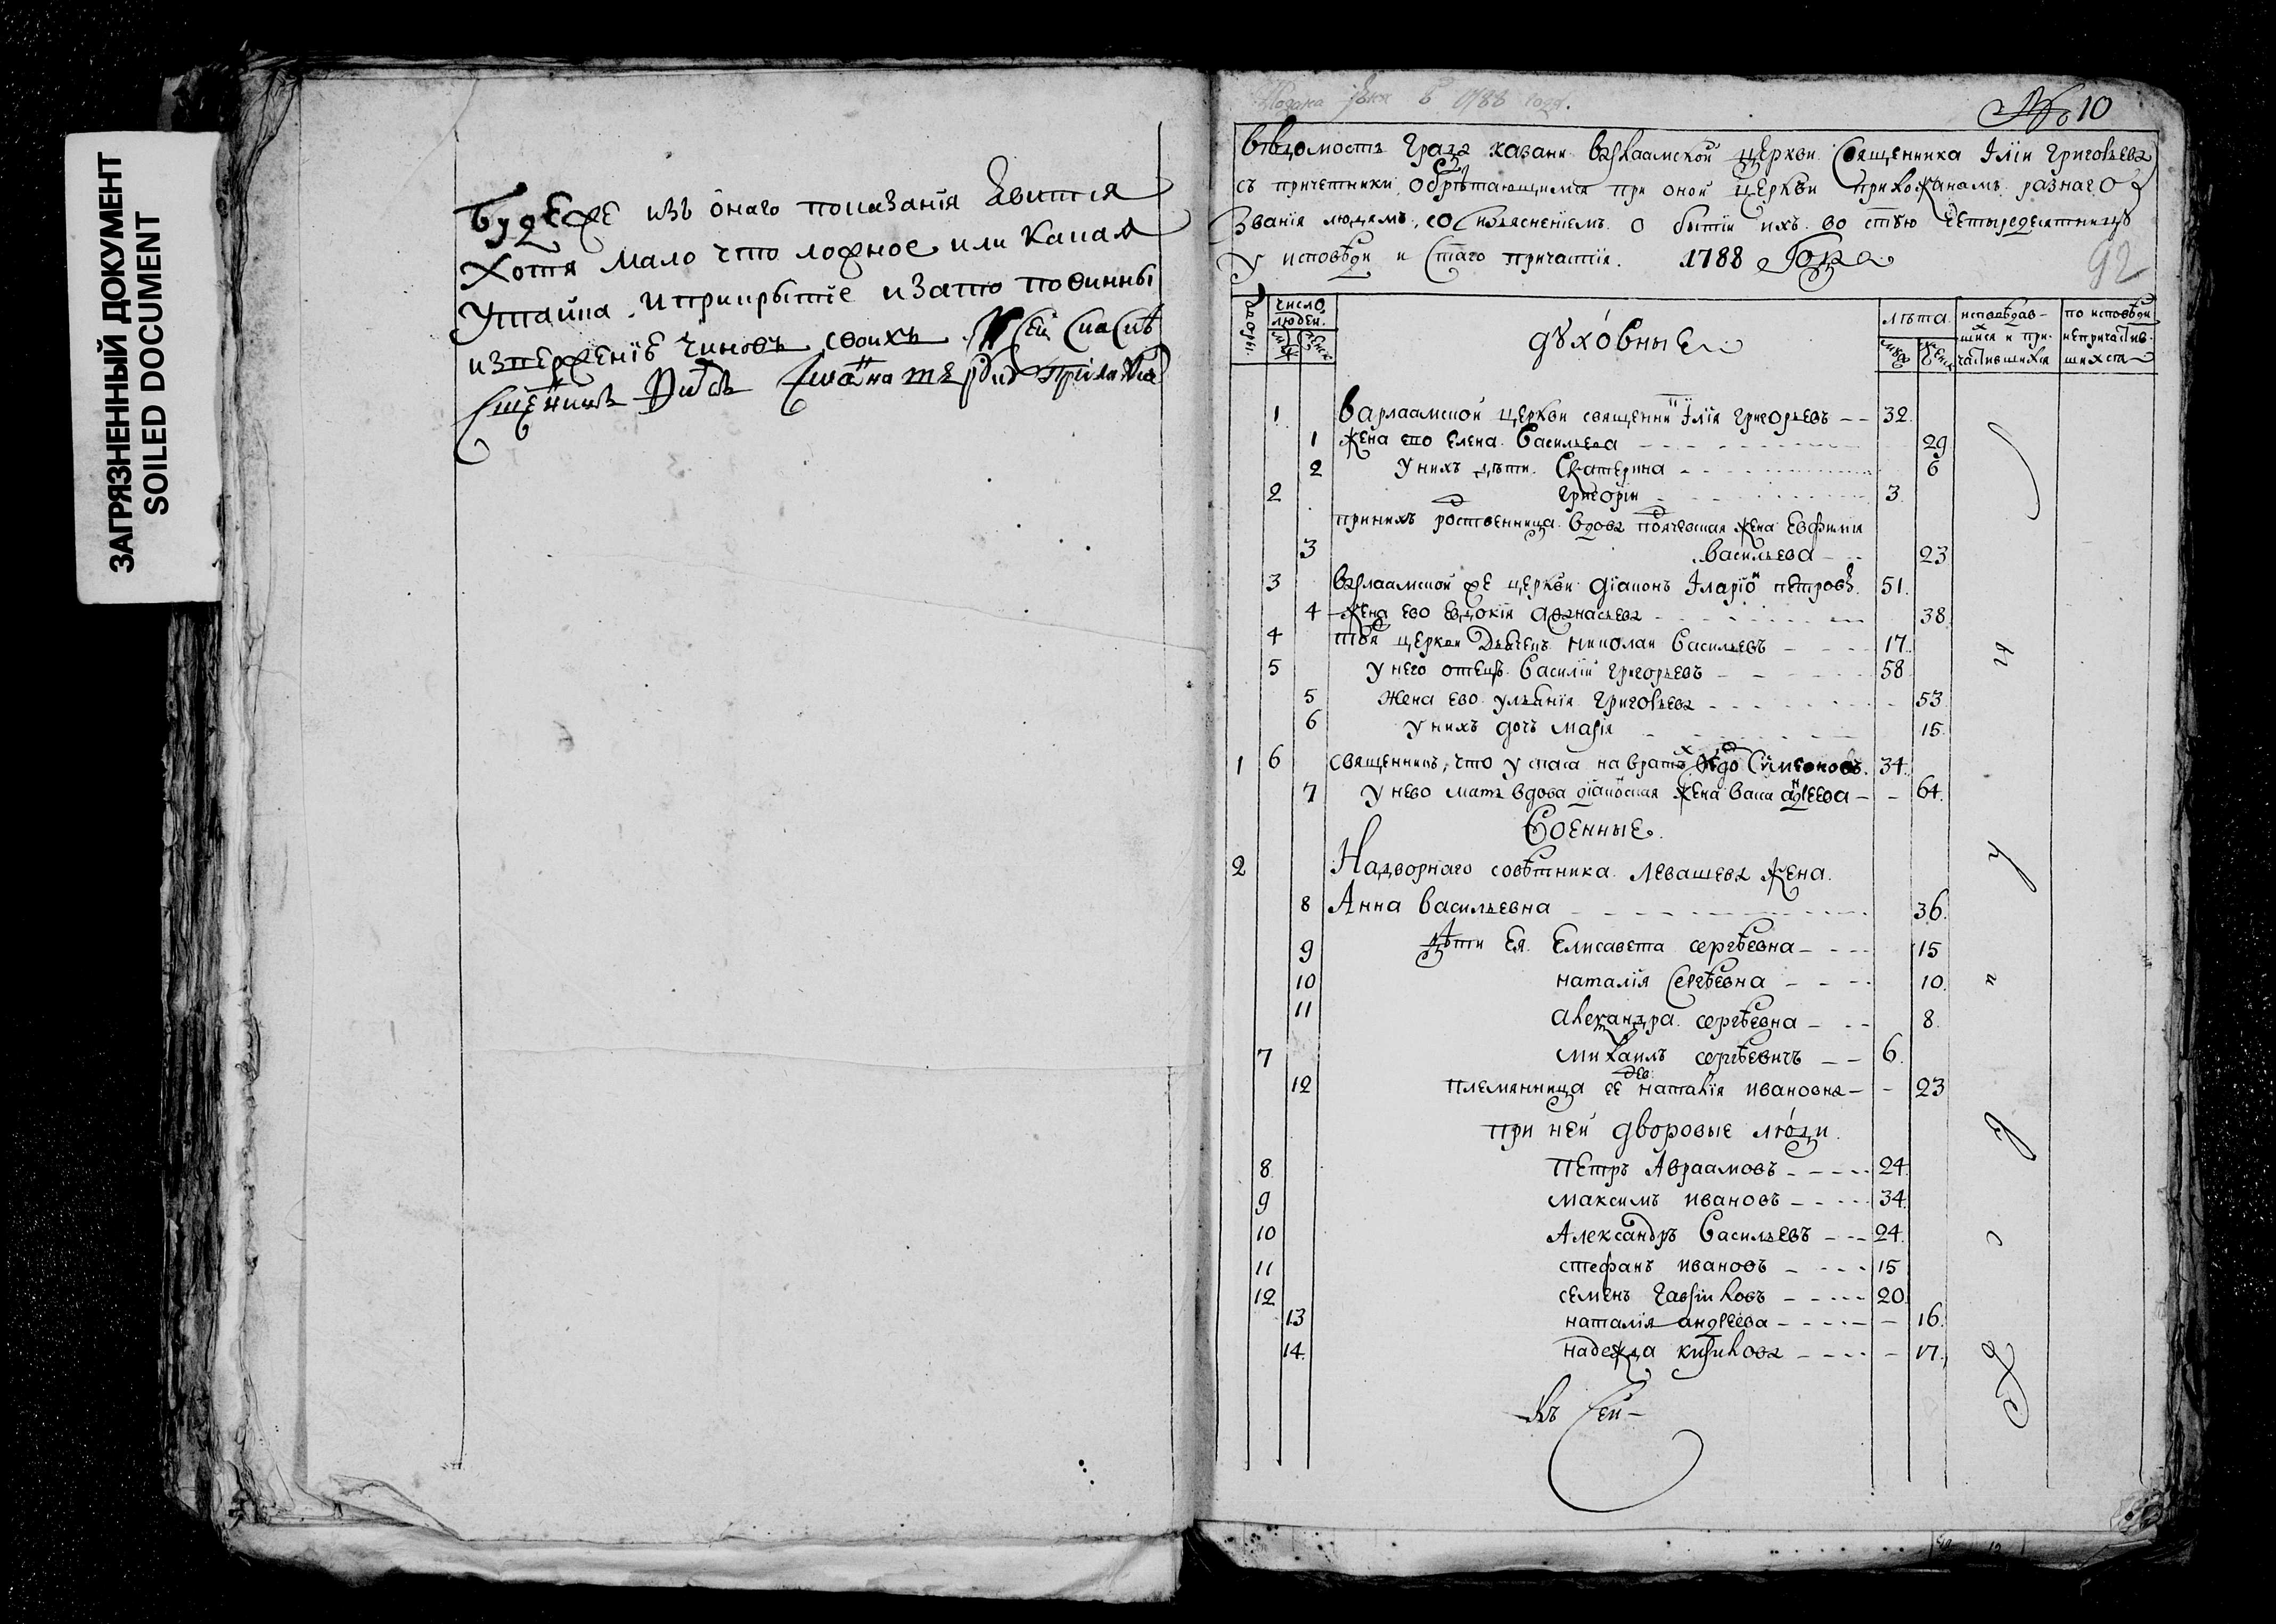 ЗАГРЯЗНЕННЫЙ ДОКУМЕНТ
SOILED DOCUMENT
Будеже изъ онаго показанія явится
Хотя мало что ложное или какая
Утайка и прикрытіе и за то повинны
изверженіе чиновъ своихъ
Подана 1788 года.
№ 10
Вѣдомость града казани варлаамской церкви священника Іліи григорьева
съ причетники обрѣтающимся при оной церкви прихожанамъ разнаго
Званія людямъ, со изъясненіемъ о бытіи ихъ во стую четыредесятницу
У исповѣди и стаго причастія. 1788 Года
92
Дворы.
число людей.
духо́вные
лѣта.
исповѣдав-
шихся и при-
частившихся
по исповѣди
непричастив-
шихся
1 варлаамской церкви священни Ілія григорьевъ 32.
1 жена его елена Васильева 29
2 у нихъ дѣти. Екатерина 6
2 григорій 3.
при нихъ родственница вдова подячевская жена Евфимія
3 васильева 23
3 варлаамской же церкви діаконъ Іларіон петровъ. 51.
4 жена ево Евдокія Афанасьева 38
4 той церкви Дьячекъ николай Васильевъ 17.
5 у него отецъ Василій григорьевъ 58
5 жена ево ульянія григорьева 53
6 у нихъ дочь марія 15.
1 6 священникъ, что у спаса на вратах Симеоновъ. 34.
7 у нево мать вдова діаконская жена андреева 64.
Военные.
2 Надворнаго совѣтника Левашева жена.
8 Анна Васильевна 36.
9 дѣти Ея Елисавета сергѣевна 15
10 наталія Сергѣевна 10.
11 александра сергѣевна 8.
7 михаилъ сергѣевичъ 6.
12 племянница ее дев: наталія ивановна 23
при ней дворовые люди.
8 Петръ Авраамовъ 24.
9 максимъ ивановъ 34.
10 Александръ Васильевъ 24.
11 стефанъ ивановъ 15
12 семенъ гавриловъ 20.
13 наталія андреева 16.
14. надежда кирилова 17.
Къ Сей